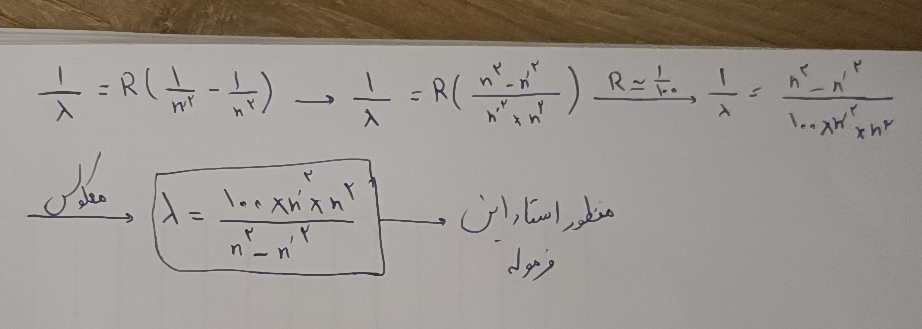 1/λ = R(1/n'^۲ - 1/n^۲) → 1/λ = R((n^۲ - n'^۲)/(n'^۲ × n^۲)) R ≃ ۱/۱۰۰ → 1/λ = (n^۲ - n'^۲)/(۱۰۰ × n'^۲ × n^۲)
معکوس → λ = (۱۰۰ × n'^۲ × n^۲)/(n^۲ - n'^۲) → منظور استاد این
فرموله